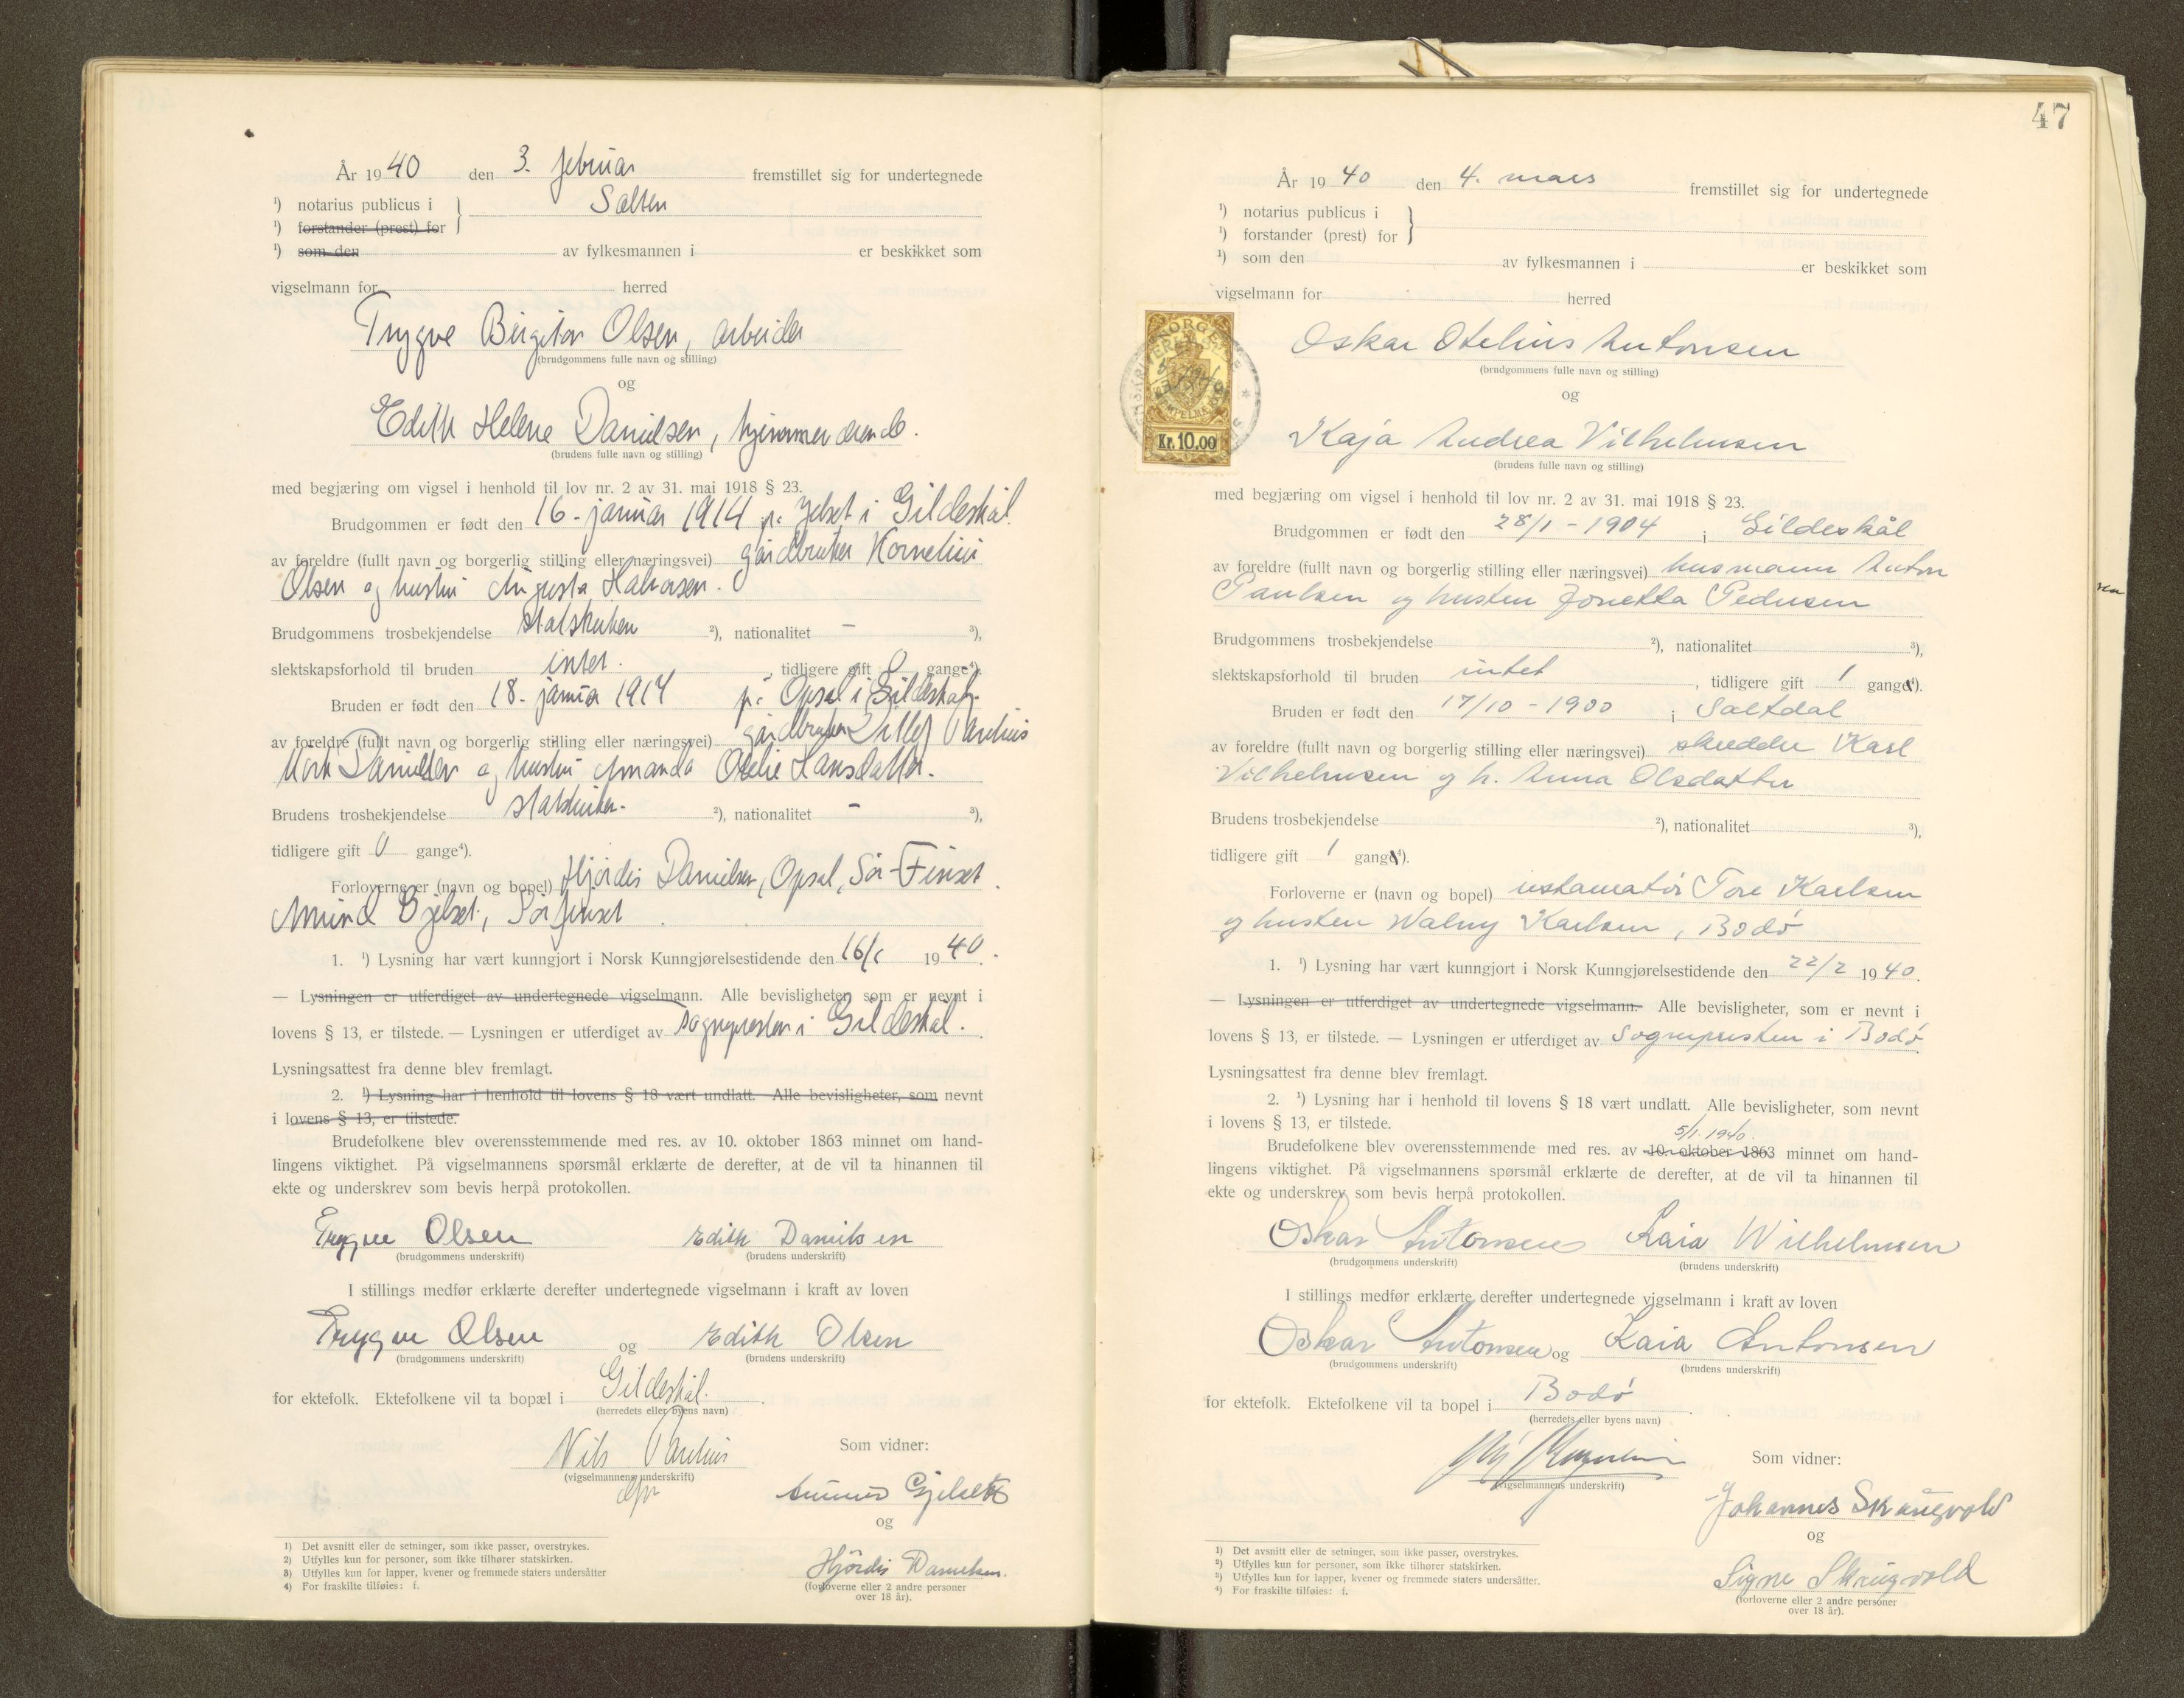 År 1940 den 3. februar fremstillet sig for undertegnede
¹) notarius publicus i Salten
¹) forstander (prest) for
¹) som den av fylkesmannen i er beskikket som
vigselmann for herred
Trygve Birgiton Olsen, arbeider
(brudgommens fulle navn og stilling)
og
Edith Helene Danielsen, hjemmeværende.
(brudens fulle navn og stilling)
med begjæring om vigsel i henhold til lov nr. 2 av 31. mai 1918 § 23.
Brudgommen er født den 16. januar 1914 på Jelset i Gildeskål.
av foreldre (fullt navn og borgerlig stilling eller næringsvei) gårdbruker Kornelius
Olsen og hustru Augusta Halvorsen.
Brudgommens trosbekjendelse statskirken ²), nationalitet – ³),
slektskapsforhold til bruden intet. , tidligere gift 0 gange⁴).
Bruden er født den 18. januar 1914 på Opsal i Gildeskål.
av foreldre (fullt navn og borgerlig stilling eller næringsvei) gårdbruker
Mørk Danielsen og hustru Amanda Otelie Hansdatter.
Brudens trosbekjendelse statskirken. ²), nationalitet – ³),
tidligere gift 0 gange⁴).
Forloverne er (navn og bopel) Hjørdis Danielsen, Opsal, Sør-Finset.
Amund Gjelset, Sørfinset
1. ¹) Lysning har vært kunngjort i Norsk Kunngjørelsestidende den 16/1 1940.
— Lysningen er utferdiget av undertegnede vigselmann. Alle bevisligheter, som er nevnt i
lovens § 13, er tilstede. — Lysningen er utferdiget av sogneprestens i Gildeskål.
Lysningsattest fra denne blev fremlagt.
2. ¹) Lysning har i henhold til lovens § 18 vært undlatt. Alle bevisligheter, som nevnt
i lovens § 13, er tilstede.
Brudefolkene blev overensstemmende med res. av 10. oktober 1863 minnet om hand-
lingens viktighet. På vigselmannens spørsmål erklærte de derefter, at de vil ta hinannen til
ekte og underskrev som bevis herpå protokollen.
Trygve Olsen Edith Danielsen
(brudgommens underskrift) (brudens underskrift)
I stillings medfør erklærte derefter undertegnede vigselmann i kraft av loven
Trygve Olsen og Edith Olsen
(brudgommens underskrift) (brudens underskrift)
for ektefolk. Ektefolkene vil ta bopæl i Gildeskål.
(herredets eller byens navn)
Nils Parelius
(vigselmannens underskrift)
Som vidner:
Amund Gjelseth
og
Hjördis Danielsen.
(forloverne eller 2 andre personer
over 18 år).
1) Det avsnitt eller de setninger, som ikke passer, overstrykes.
2) Utfylles kun for personer, som ikke tilhører statskirken.
3) Utfylles kun for lapper, kvener og fremmede staters undersåtter
4) For fraskilte tilføies: f.
47
År 1940 den 4. mars fremstillet sig for undertegnede
¹) notarius publicus i
¹) forstander (prest) for
¹) som den av fylkesmannen i er beskikket som
vigselmann for herred
NORGE
Kr. 10.00
Oskar Otelius Antonsen
(brudgommens fulle navn og stilling)
og
Kaja Andrea Vilhelmsen
(brudens fulle navn og stilling)
med begjæring om vigsel i henhold til lov nr. 2 av 31. mai 1918 § 23.
Brudgommen er født den 28/1 - 1904 i Gildeskål
av foreldre (fullt navn og borgerlig stilling eller næringsvei) husmann Anton
Paulsen og hustru Jonetta Pedersen
Brudgommens trosbekjendelse ²), nationalitet ³),
slektskapsforhold til bruden intet , tidligere gift 1 gange⁴).
Bruden er født den 17/10 - 1900 i Saltdal
av foreldre (fullt navn og borgerlig stilling eller næringsvei) skredder Karl
Vilhelmsen og h. Anna Olsdatter
Brudens trosbekjendelse ²), nationalitet ³),
tidligere gift 1 gange⁴).
Forloverne er (navn og bopel) restauratør Tore Karlsen
og hustru Walny Karlsen, Bodø
1. ¹) Lysning har vært kunngjort i Norsk Kunngjørelsestidende den 22/2 1940.
— Lysningen er utferdiget av undertegnede vigselmann. Alle bevisligheter, som er nevnt i
lovens § 13, er tilstede. — Lysningen er utferdiget av sognepresten i Bodø
Lysningsattest fra denne blev fremlagt.
2. ¹) Lysning har i henhold til lovens § 18 vært undlatt. Alle bevisligheter, som nevnt
i lovens § 13, er tilstede.
5/1. 1940.
Brudefolkene blev overensstemmende med res. av 10. oktober 1863 minnet om hand-
lingens viktighet. På vigselmannens spørsmål erklærte de derefter, at de vil ta hinannen til
ekte og underskrev som bevis herpå protokollen.
Oskar Antonsen Kaia Wilhelmsen
(brudgommens underskrift) (brudens underskrift)
I stillings medfør erklærte derefter undertegnede vigselmann i kraft av loven
Oskar Antonsen og Kaia Antonsen
(brudgommens underskrift) (brudens underskrift)
for ektefolk. Ektefolkene vil ta bopel i Bodø
(herredets eller byens navn)
(vigselmannens underskrift)
Som vidner:
Johannes Skaugvold
og
Signe Skaugvold
(forloverne eller 2 andre personer
over 18 år).
1) Det avsnitt eller de setninger, som ikke passer, overstrykes.
2) Utfylles kun for personer, som ikke tilhører statskirken.
3) Utfylles kun for lapper, kvener og fremmede staters undersåtter.
4) For fraskilte tilføies: f.